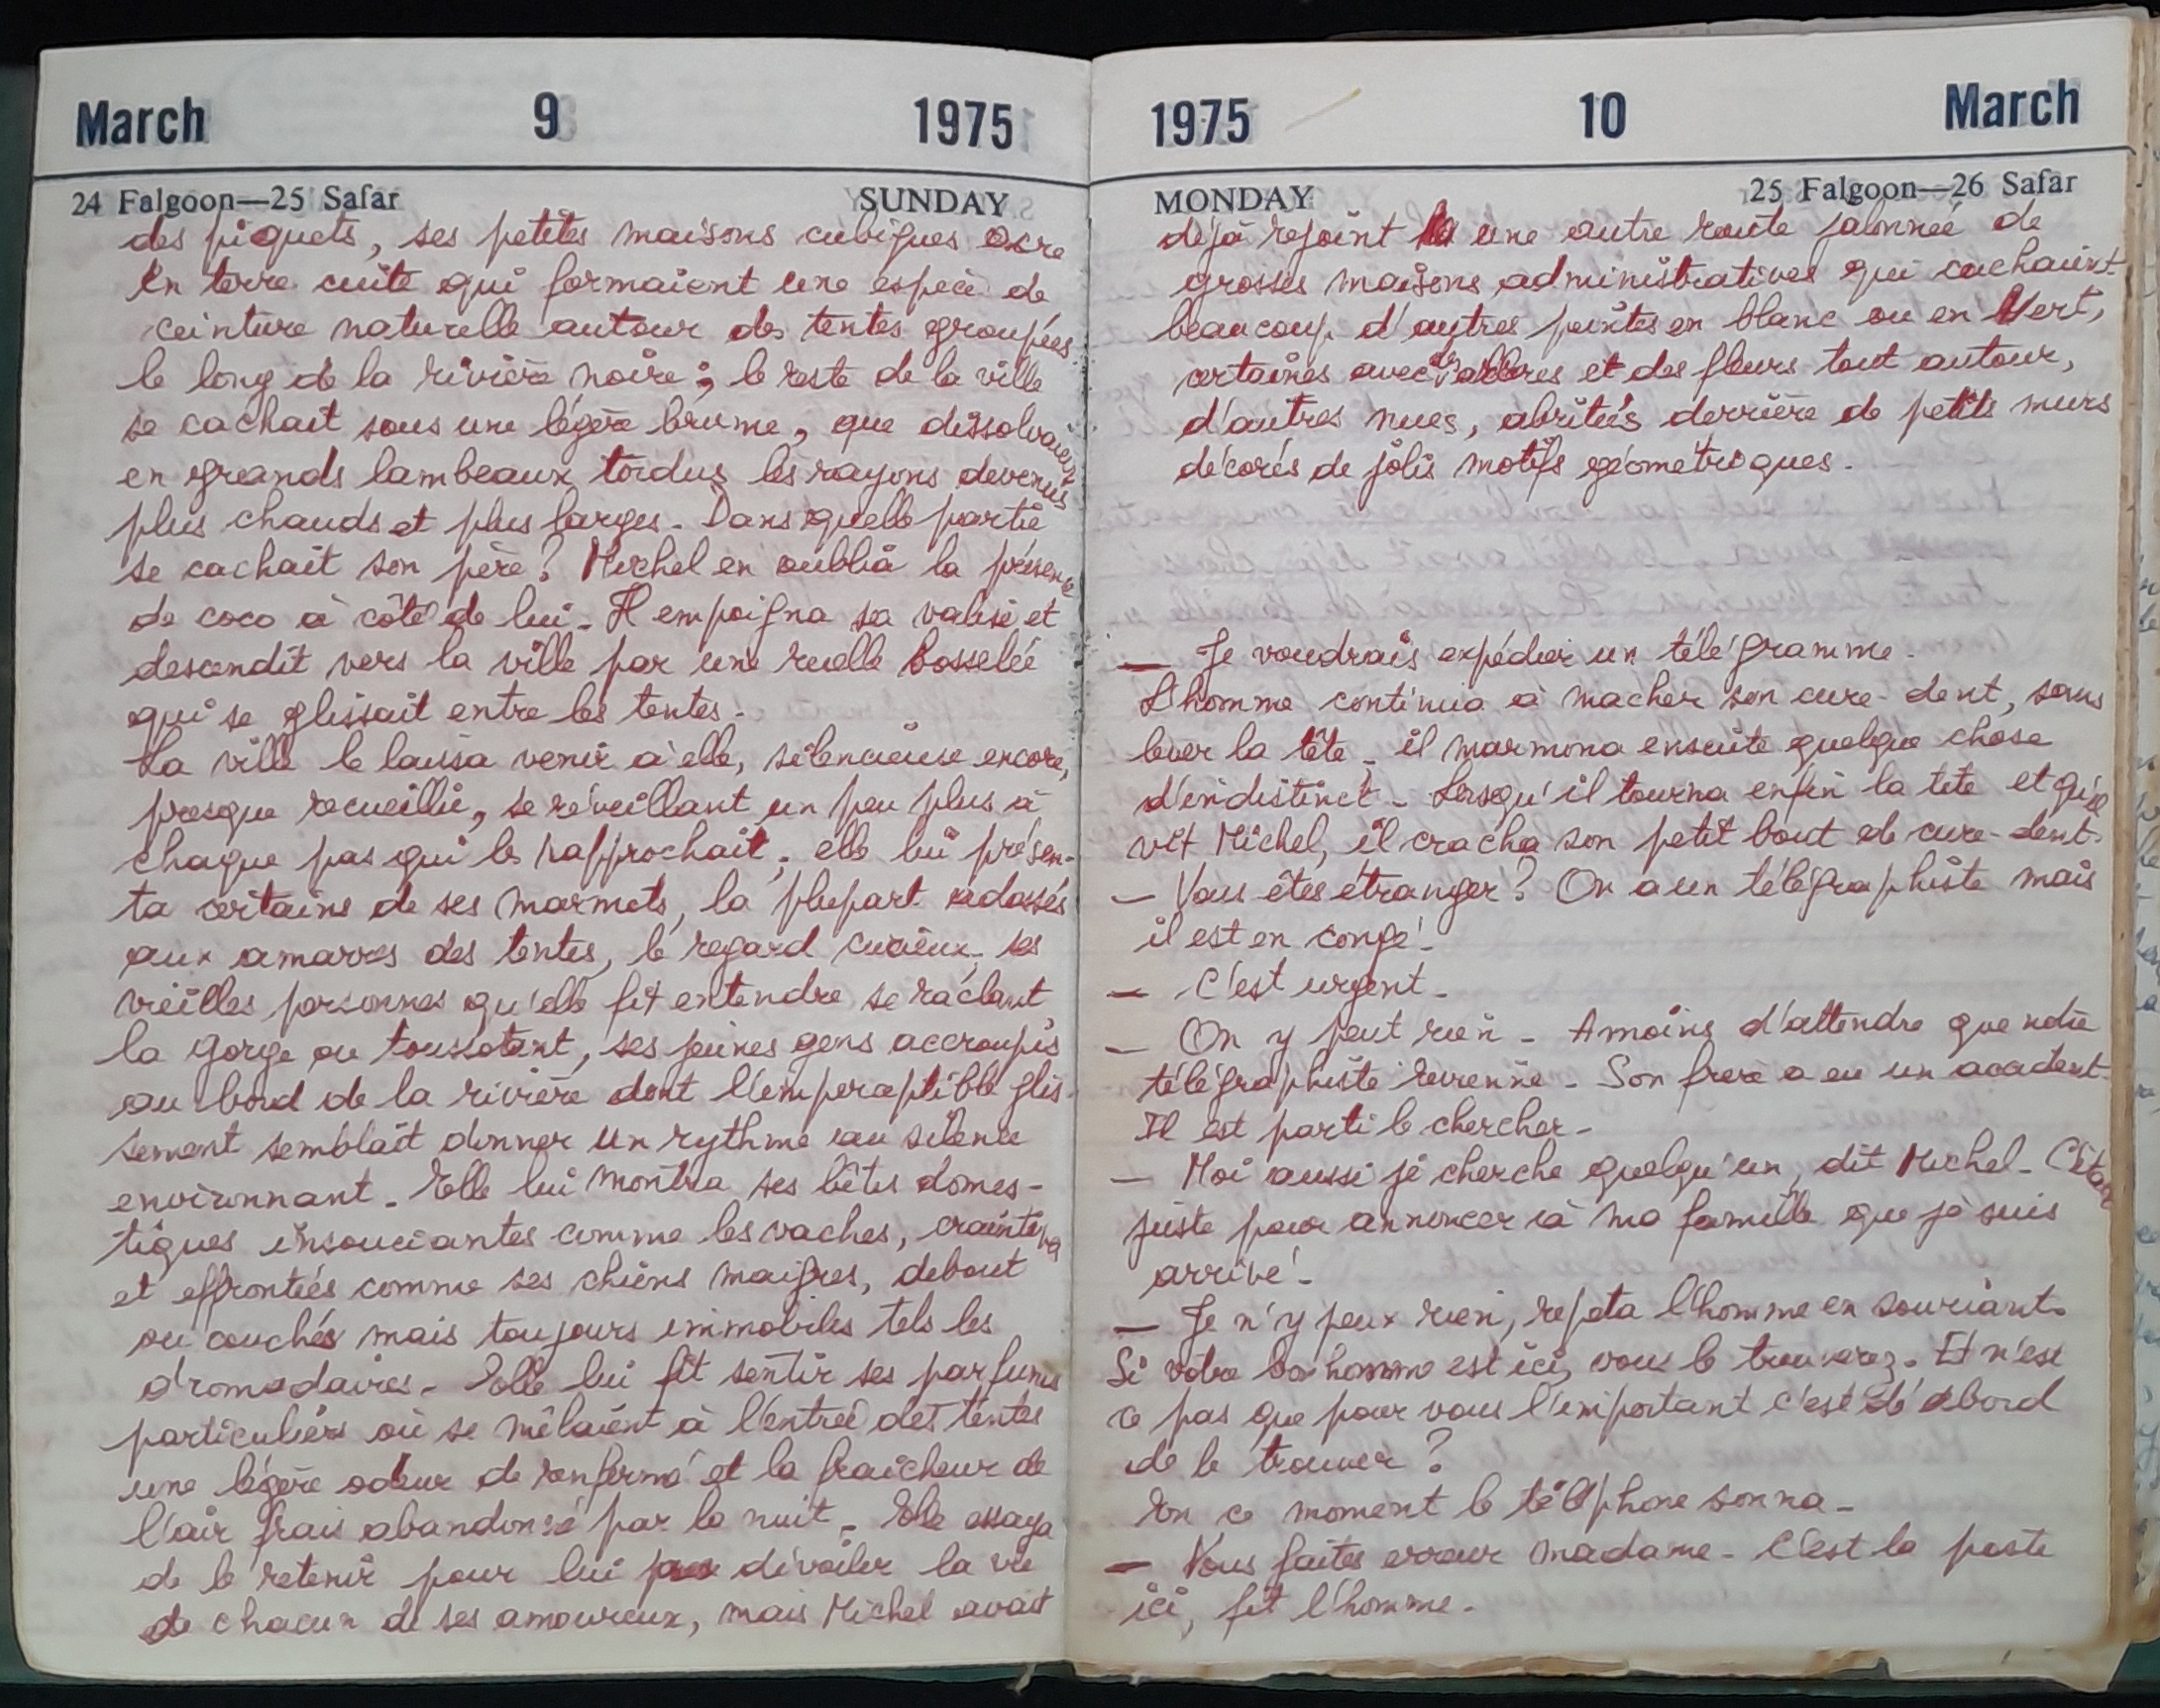 March 9 1975
24 Falgoon—25 Safar SUNDAY
des piquets, ses petites maisons cubiques ocre
en terre cuite qui formaient une espèce de
ceinture naturelle autour des tentes groupées
le long de la rivière noire ; le reste de la ville
se cachait sous une légère brume, que dissolvaient
en grands lambeaux tordus les rayons devenus
plus chauds et plus larges. Dans quelle partie
se cachait son père ? Michel en oublia la présence
de coco à côté de lui. Il empoigna sa valise et
descendit vers la ville par une ruelle bosselée
qui se glissait entre les tentes.
La ville le laissa venir à elle, silencieuse encore,
presque recueillie, se réveillant un peu plus à
chaque pas qui les rapprochait ; elle lui présen-
ta certains de ses marmots, la plupart adossés
aux amarres des tentes, le regard curieux, ses
vieilles personnes qu'elle fit entendre se raclant
la gorge ou toussotant, ses jeunes gens accroupis
au bord de la rivière dont l'imperceptible glis-
sement semblait donner un rythme au silence
environnant. Elle lui montra ses bêtes domes-
tiques insouciantes comme les vaches, craintives
et effrontées comme ses chiens maigres, debout
ou couchés mais toujours immobiles tels les
dromadaires. Elle lui fit sentir ses parfums
particuliers où se mêlaient à l'entrée des tentes
une légère odeur de renfermé et la fraîcheur de
l'air frais abandonné par la nuit. Elle essaya
de le retenir pour lui dévoiler la vie
de chacun de ses amoureux, mais Michel avait
1975 10 March
MONDAY 25 Falgoon—26 Safar
déjà rejoint une autre route jalonnée de
grosses maisons administratives qui cachaient
beaucoup d'autres peintes en blanc ou en vert,
certaines avec des arbres et des fleurs tout autour,
d'autres nues, abritées derrière de petits murs
décorés de jolis motifs géométriques.
— Je voudrais expédier un télégramme.
L'homme continua à macher son cure-dent, sans
lever la tête ; il marmona ensuite quelque chose
d'indistinct. Lorsqu'il tourna enfin la tete et qu'il
vit Michel, il cracha son petit bout de cure-dent.
— Vous êtes étranger ? On a un télégraphiste mais
il est en congé.
— C'est urgent.
— On y peut rien. A moins d'attendre que notre
télégraphiste revienne. Son frère a eu un accident.
Il est parti le chercher.
— Moi aussi je cherche quelqu'un, dit Michel. C'était
juste pour annoncer à ma famille que je suis
arrivé.
— Je n'y peux rien, repeta l'homme en souriant.
Si votre bonhomme est ici, vous le trouverez. Et n'est
ce pas que pour vous l'important c'est d'abord
de le trouver ?
En ce moment le téléphone sonna.
— Vous faites erreur madame. C'est la poste
ici, fit l'homme.